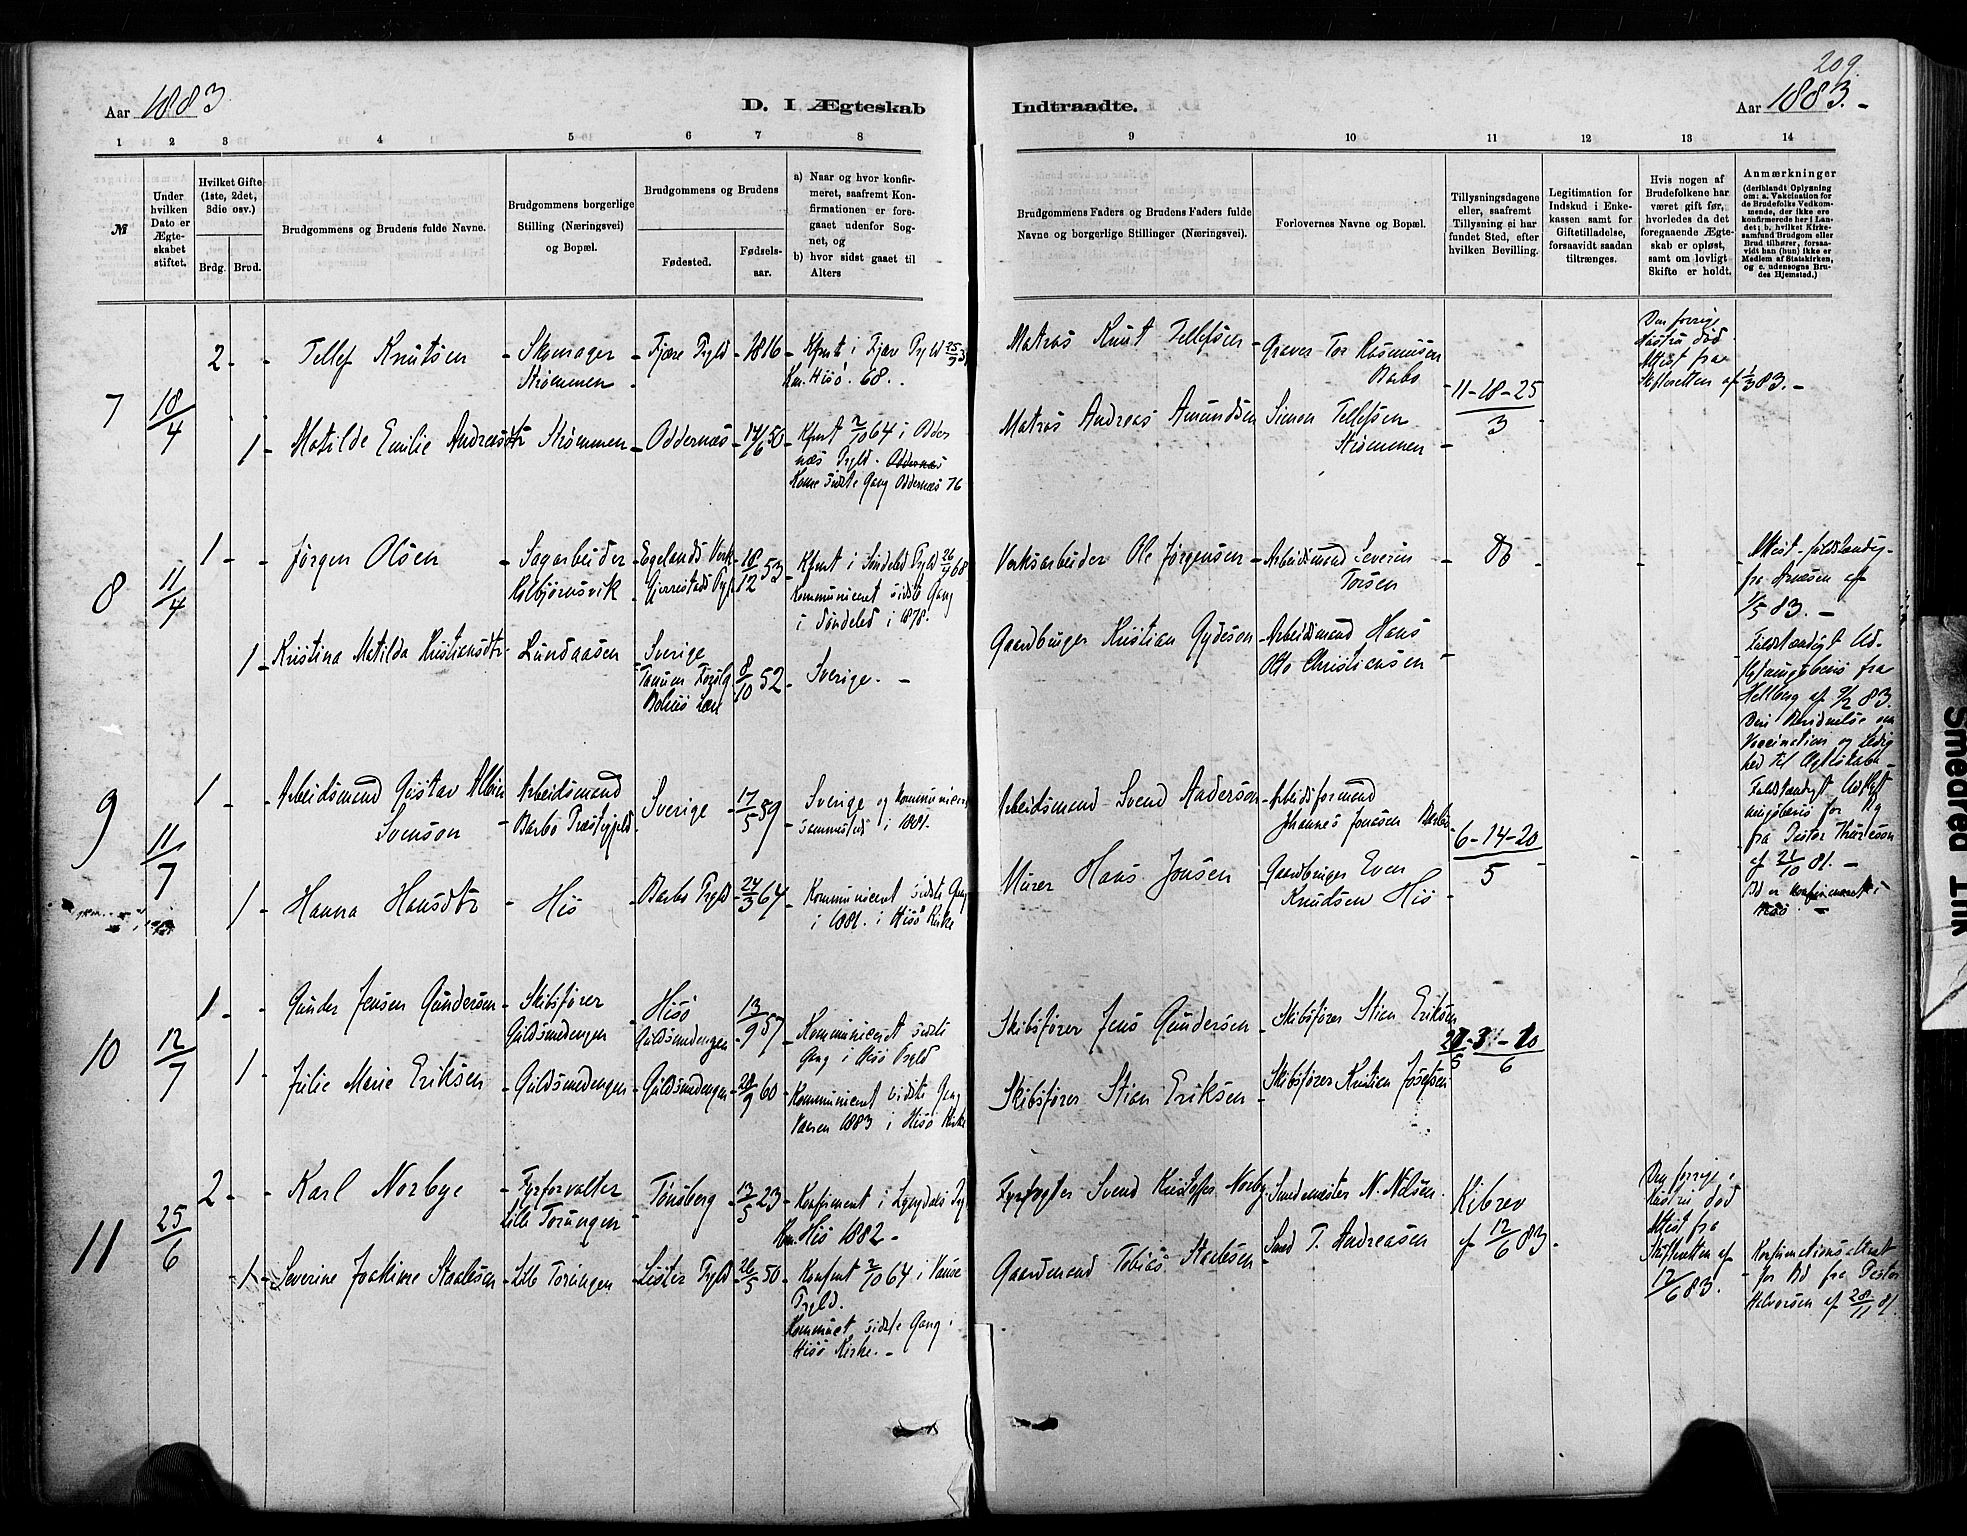 209.
Aar 1883.
D. I Ægteskab
Indtraadte.
Aar 1883.-
1 2 3 4 5 6 7 8
9 10 11 12 13 14
№
Under hvilken Dato er Ægteskabet stiftet.
Hvilket Gifte (1ste, 2det, 3die osv.)
Brdg. Brud.
Brudgommens og Brudens fulde Navne.
Brudgommens borgerlige Stilling (Næringsvei) og Bopæl.
Brudgommens og Brudens
Fødested.
Fødselsaar.
a) Naar og hvor konfirmeret, saafremt Konfirmationen er foregaaet udenfor Sognet, og
b) hvor sidst gaaet til Alters
Brudgommens Faders og Brudens Faders fulde Navne og borgerlige Stillinger (Næringsvei).
Forlovernes Navne og Bopæl.
Tillysningsdagene eller, saafremt Tillysning ei har fundet Sted, efter hvilken Bevilling.
Legitimation for Indskud i Enkekassen samt for Giftetilladelse, forsaavidt saadan tiltrænges.
Hvis nogen af Brudefolkene har været gift før, hvorledes da det foregaaende Ægteskab er opløst, samt om lovligt Skifte er holdt.
Anmærkninger
(deriblandt Oplysning om: a. Vakcination for de Brudefolks Vedkommende, der ikke ere konfirmerede her i Landet; b. hvilket Kirkesamfund Brudgom eller Brud tilhører, forsaavidt han (hun) ikke er Medlem af Statskirken, og c. udensogns Brudes Hjemsted.)
7 10/4
2 - Tellef Knutsen - Skomager Strømmen - Fjære Prgld - 1816 - Kfmt i Fjære Prgld 25/9 31 Km. Hisö. 68.
Matros Knut Tellefsen - Graver Tor Rasmussen Barbo
Den forrige Hustru död Attest fra Skifteretten af 1/3 83.-
11-18-25/3
1 - Matilde Emilie Andreasdtr Strömmen - Oddernæs - 17/6 50 - Kfmt 2/10 64 i Oddernæs Prgld. Oddernæs Komm. sidste Gang Oddernæs 76
Matros Andreas Amundsen Simon Tellefsen Strömmen
8 11/4
1 - Jörgen Olsen - Sagarbeider Kolbjörnsvik - Egelands Verk Gjerrestads Prgld - 18/12 53 - Kfmt i Söndeled Prgld 26/4 68 Kommuniceret sidste Gang i Söndeled i 1878.
Verksarbeider Ole Jörgensen - Arbeidsmand Severin Torsen - Do
1 - Kristina Matilda Kristiansdtr - Lundaasen - Sverige Tanum Bohus Læn 8/10 52 - Sverige. -
Gaardbruger Kristian Gydeson - Arbeidsmand Hans Otto Christiansen
Attest fra Arnesen af 1/5 83.-
Fuldstændigt Udflytningsbevis fra Hellberg af 9/2 83. Vaccination og Ledighed til Ægteskab -
9 11/7
1 - Arbeidsmand Gustav Albin Svenson - Arbeidsmand Barbo Præstegjeld - Sverige - 17/5 59 - Sverige og kommuniceret sammesteds i 1881.
Arbeidsmand Svend Anderson - Arbeidsformand Johannes Jonassen Barbo
6-14-20/5
Fuldstændigt Udflytningsbevis for Bg fra Pastor Thuresson af 21/10 81.-
1 - Hanna Hansdtr - Hisö - Barbo Prgld - 24/3 64 - Kommuniceret sidste Gang i 1881. i Hisö Kirke
Murer Hans Jonsen - Gaardbruger Even Knudsen Hisö
Bd er konfirmeret i Hisö -
10 12/7
1 - Gunder Jensen Gundersen - Skibsförer Guldsmedengen - Hisö Guldsmedengen - 13/9 57 - Kommuniceret sidste Gang i Hisö Prgld
Skibsförer Jens Gundersen - Skibsförer Stian Eriksen
1 - Julie Marie Eriksen - Guldsmedengen - Guldsmedengen - 29/9 60 - Kommuniceret sidste Gang Vaaren 1883 i Hisö Kirke
Skibsförer Stian Eriksen - Skibsförer Kristian Josefsen
11 25/6
2 - Karl Norbye - Fyrforvalter Lille Torungen - Tönsberg - 13/5 23 - Konfirmeret i Lyngdals Prgld Km. Hisö 1882 -
Fyrfogter Svend Kristoffer Norby - Smedmester N. Nilsen.
Kibrev af 12/6 83
Den forrige Hustru död Attest fra Skifteretten af 12/6 83.
1 - Severine Joakime Staalesen - Lille Torungen - Lister Prgld - 26/5 50 - Konfmt 2/10 64 i Vanse Prgld. Kommuet sidste Gang i Hisö Kirke.-
Gaardmand Tobias Staalesen Smed T. Andreasen
Konfirmationsattest for Bd fra Pastor Halvorsen af 28/11 81.
Smeared Ink